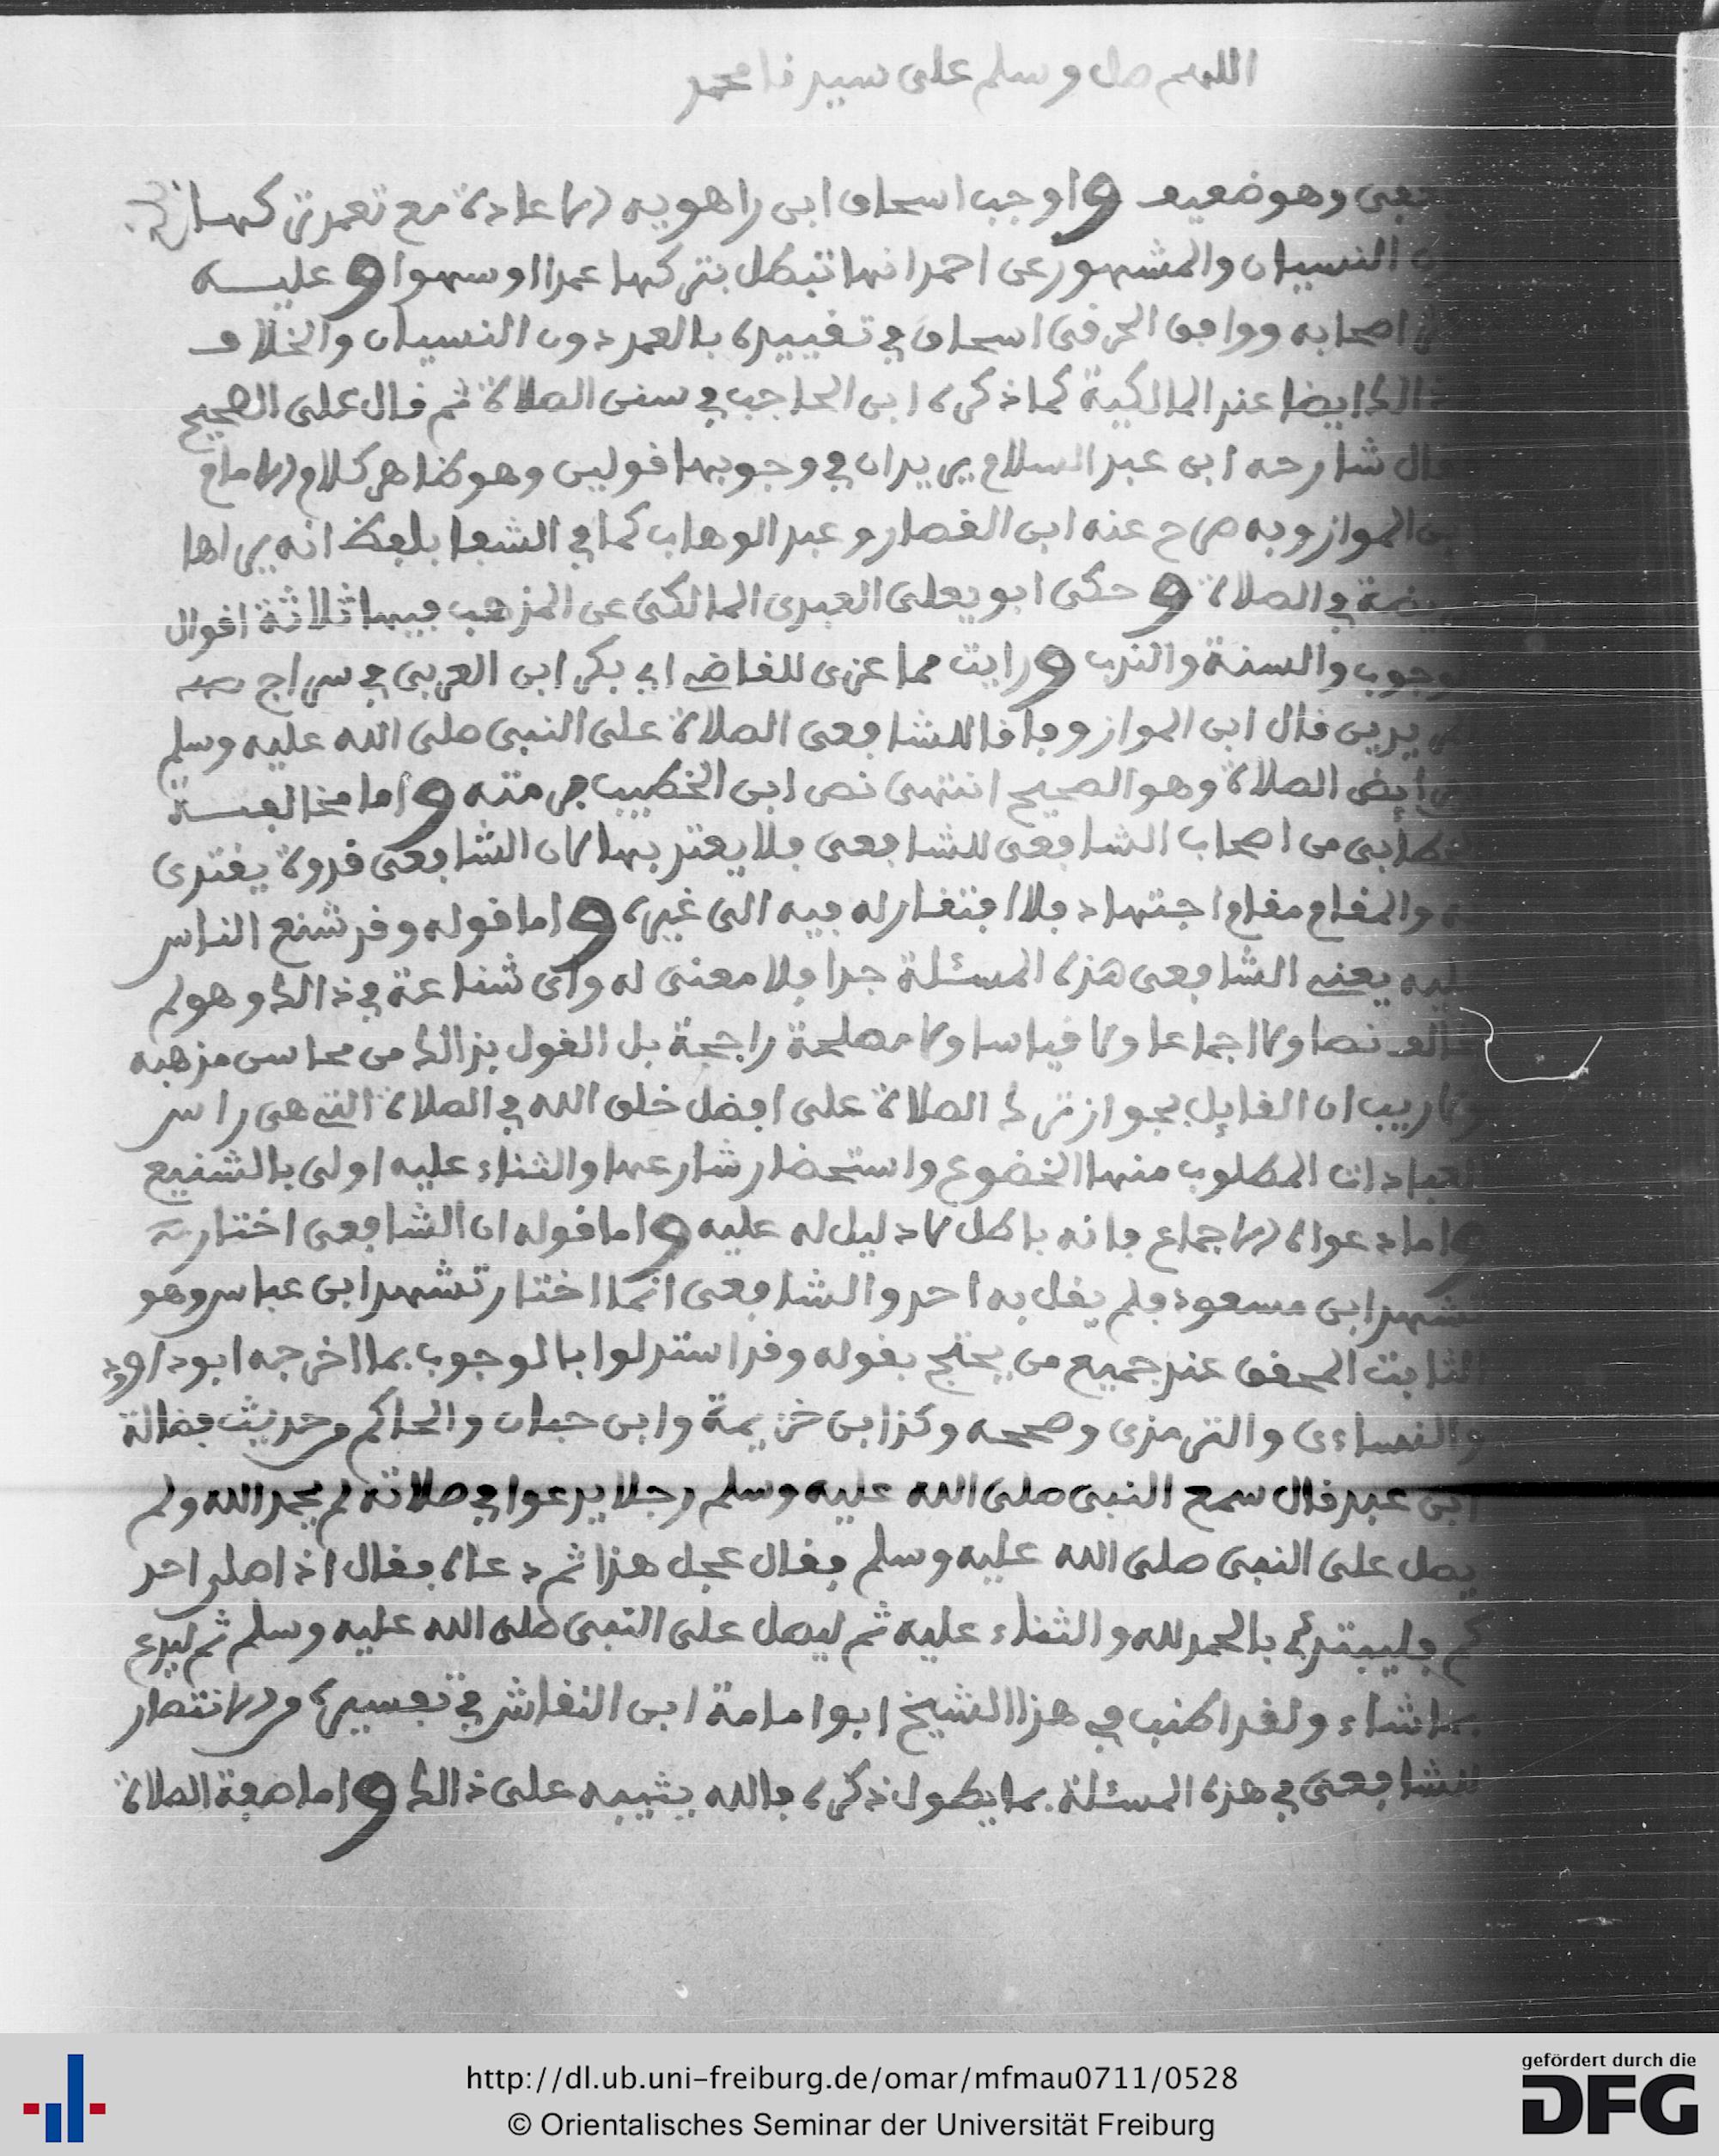 اللهم صل وسلم على سيدنا محمد
وهو ضعيف واوجب اسحاق ابن راهويه الاعادة مع تعمد تركها
النسيان والمشهور عن احمد انها تبطل بتركها عمدا او سهوا وعليه
اصحابه ووافق الخرقي اسحاق في تقييده بالعمد دون النسيان والخلاف
ذالك ايضا عند المالكية كما ذكره ابن الحاجب في سنن الصلاة ثم قال على الصحيح
قال شارحه ابن عبد السلام يريد ان في وجوبها قولين وهو ظاهر كلام الامام
ابن المواز وبه صرح عنه ابن القصار وعبد الوهاب كما في الشفا بلفظ انه يراها
في الصلاة وحكى ابو يعلى العبدي المالكي عن المذهب فيها ثلاثة اقوال
الوجوب والسنة والندب ورايت مما عزى للقاضي ابي بكر ابن العربي في سراج
قال ابن المواز وبا قال الشافعي الصلاة على النبي صلى الله عليه وسلم
الصلاة وهو الصحيح انتهى نص ابن الخطيب برمته واما مخالفة
الخطابي من اصحاب الشافعي للشافعي فلا يعتد بها لان الشافعي قدوة يقتدى
والمقام مقام اجتهاد فلا افتقار له فيه الى غيره واما قوله وقد شنع الناس
عليه يعني الشافعي هذه المسئلة جدا فلا معنى له واى شناعة في ذالك وهو لم
يخالف نصا ولا اجماعا ولا قياسا ولا مصلحة راجحة بل القول بذالك من محاسن مذهبه
ولا ريب ان القايل بجواز ترك الصلاة على افضل خلق الله في الصلاة التي هي راس
العبادات المطلوب منها الخضوع واستحضار شارعها والثناء عليه اولى بالتشنيع
واما دعواه الاجماع فانه باطل لا دليل له عليه واما قوله ان الشافعي اختار
تشهد ابن مسعود فلم يقل به احد والشافعي انما اختار تشهد ابن عباس وهو
الثابت المحقق عند جميع من يحتج بقوله وقد استدلوا بالوجوب بما اخرجه ابو داوود
والنساءى والترمذى وصححه وكذا ابن خزيمة وابن حبان والحاكم من حديث فضالة
ابن عبيد قال سمع النبي صلى الله عليه وسلم رجلا يدعوا في صلاته لم يحمد الله ولم
يصل على النبي صلى الله عليه وسلم فقال عجل هذا ثم دعاه فقال اذا صلى احد
كم فليبتدئ بالحمد لله والثناء عليه ثم ليصل على النبي صلى الله عليه وسلم ثم ليدع
بما شاء ولقد اطنب في هذا الشيخ ابو امامة ابن النقاش في تفسيره من الانتصار
للشافعي في هذه المسئلة بما يطول ذكره فالله يثيبه على ذالك واما صفة الصلاة
http://dl.ub.uni-freiburg.de/omar/mfmau0711/0528
© Orientalisches Seminar der Universität Freiburg
gefördert durch die
DFG